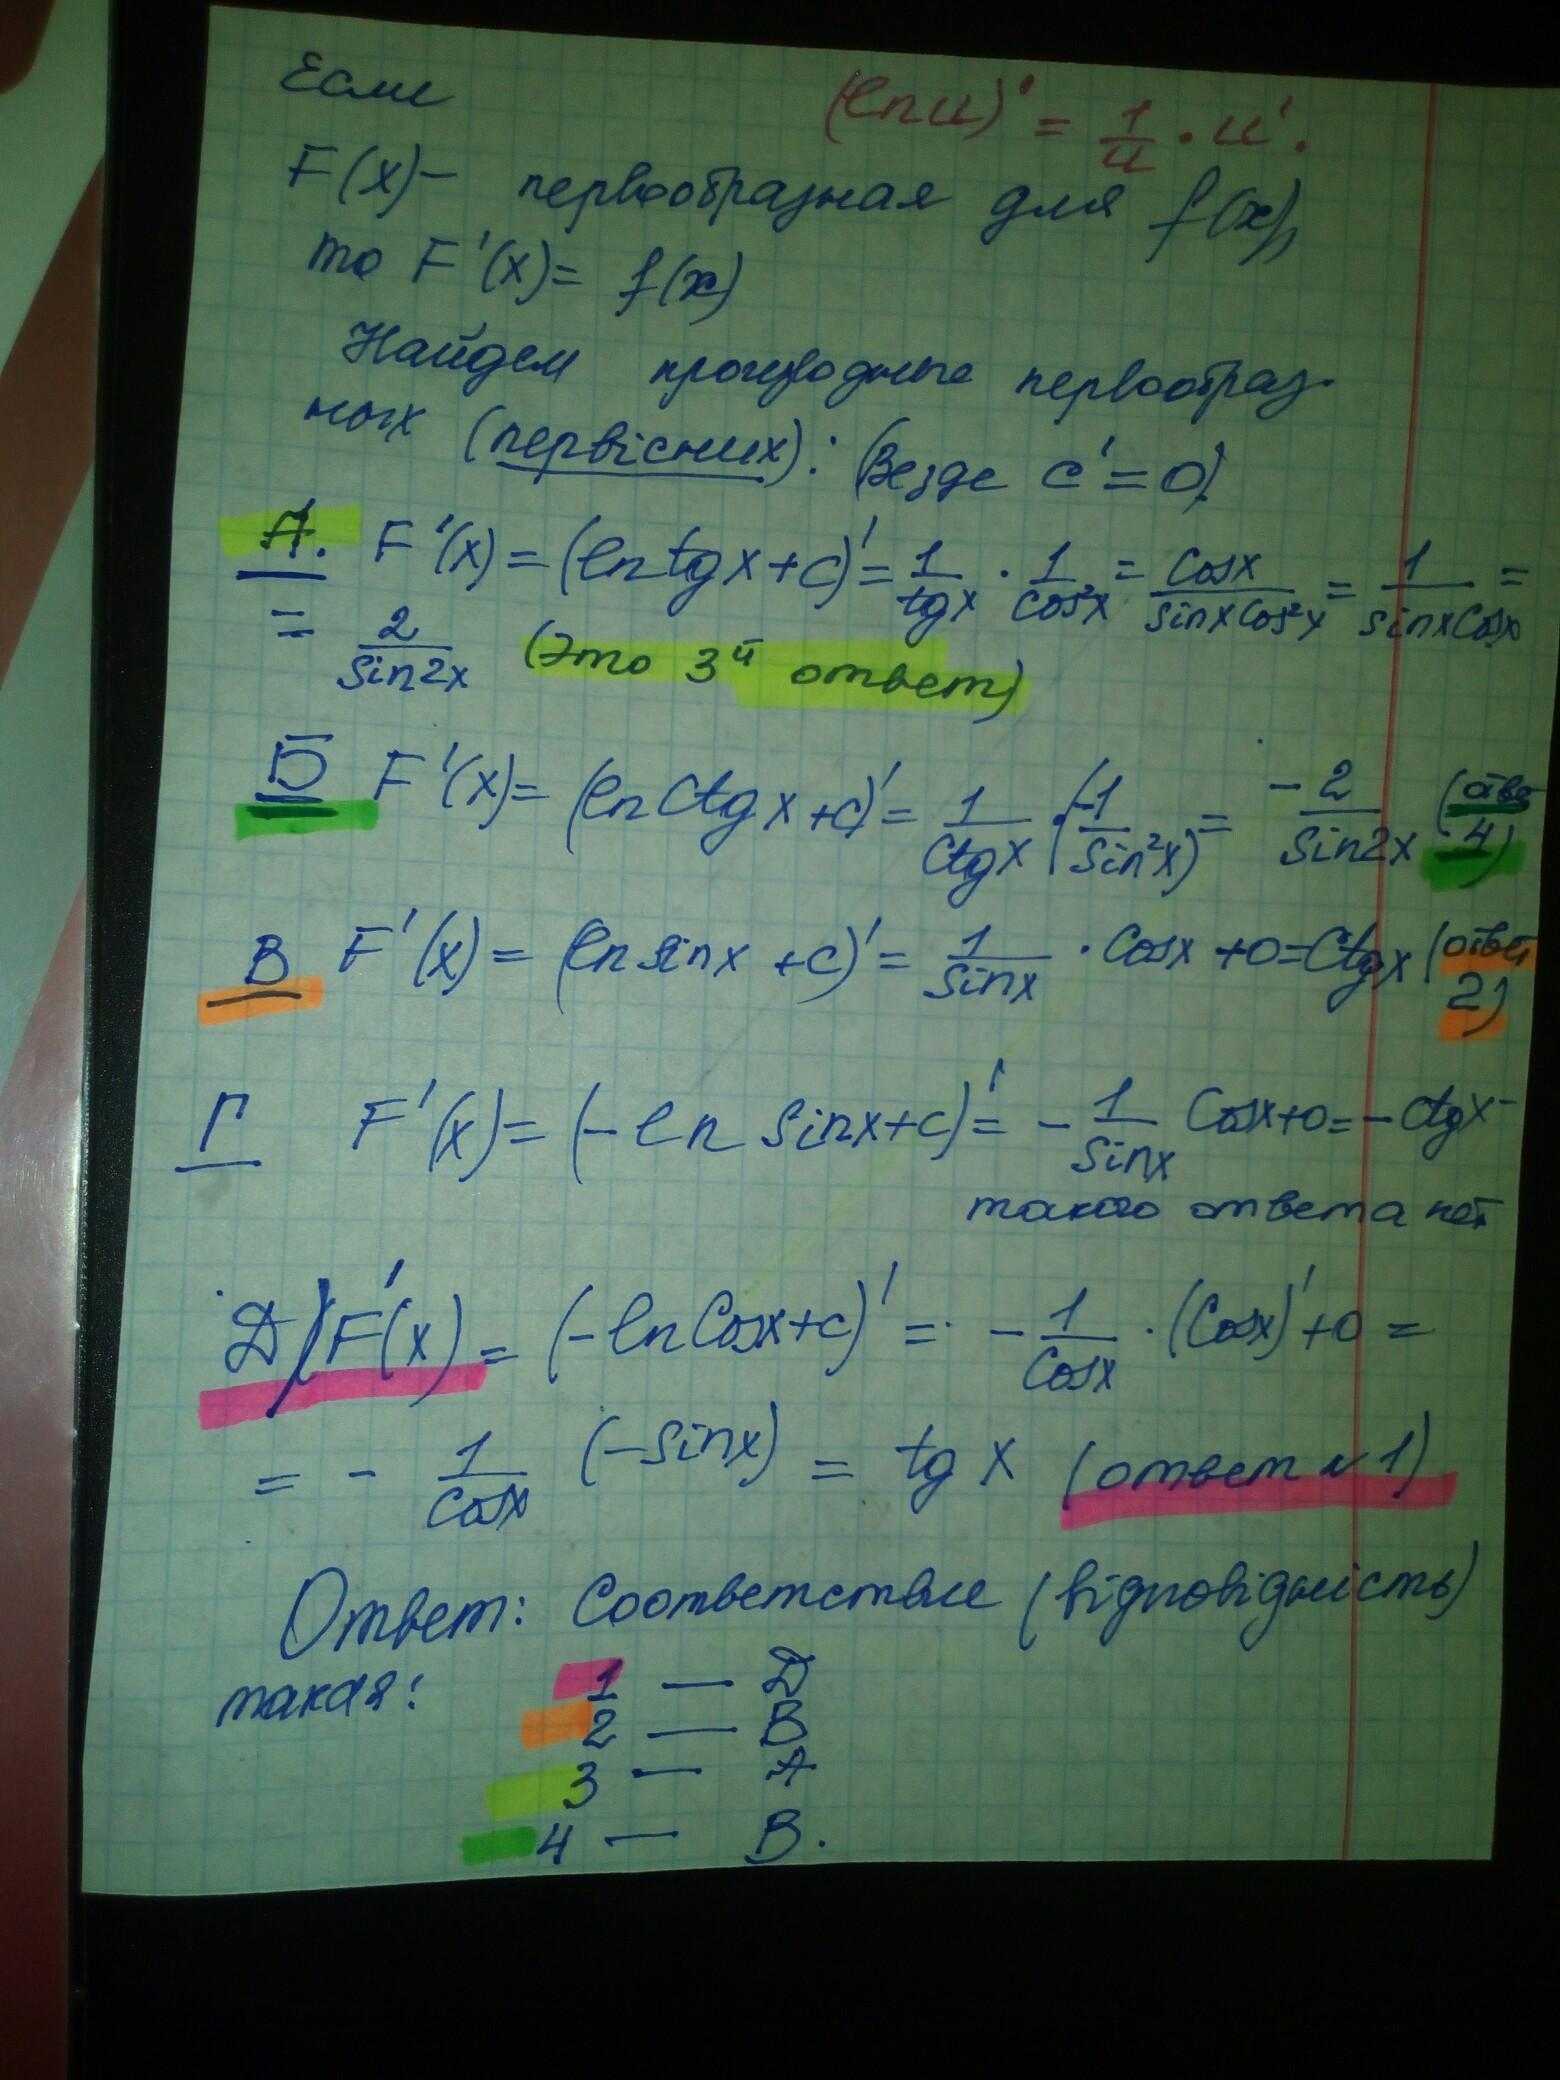 Если
(ln u)' = 1/u · u'.
F(x) – первообразная для f(x),
то F'(x) = f(x)
Найдем производные первообраз-
ных (первісних): (Везде c' = 0)
А. F'(x) = (ln tg x + c)' = 1/tg x · 1/cos²x = cos x/(sin x cos²x) = 1/(sin x cos x) =
= 2/sin2x (Это 3й ответ)
Б F'(x) = (ln ctg x + c)' = 1/ctg x · (-1/sin²x) = -2/sin2x (отв 4)
В F'(x) = (ln sin x + c)' = 1/sin x · cos x + 0 = ctg x (ответ 2)
Г F'(x) = (-ln sin x + c)' = - 1/sin x cos x + 0 = - ctg x -
такого ответа нет
Д) F'(x) = (-ln cos x + c)' = - 1/cos x · (cos x)' + 0 =
= - 1/cos x (-sin x) = tg x (ответ N 1)
Ответ: Соответствие (відповідність)
такая:
1 — Д
2 — В
3 — А
4 — В.